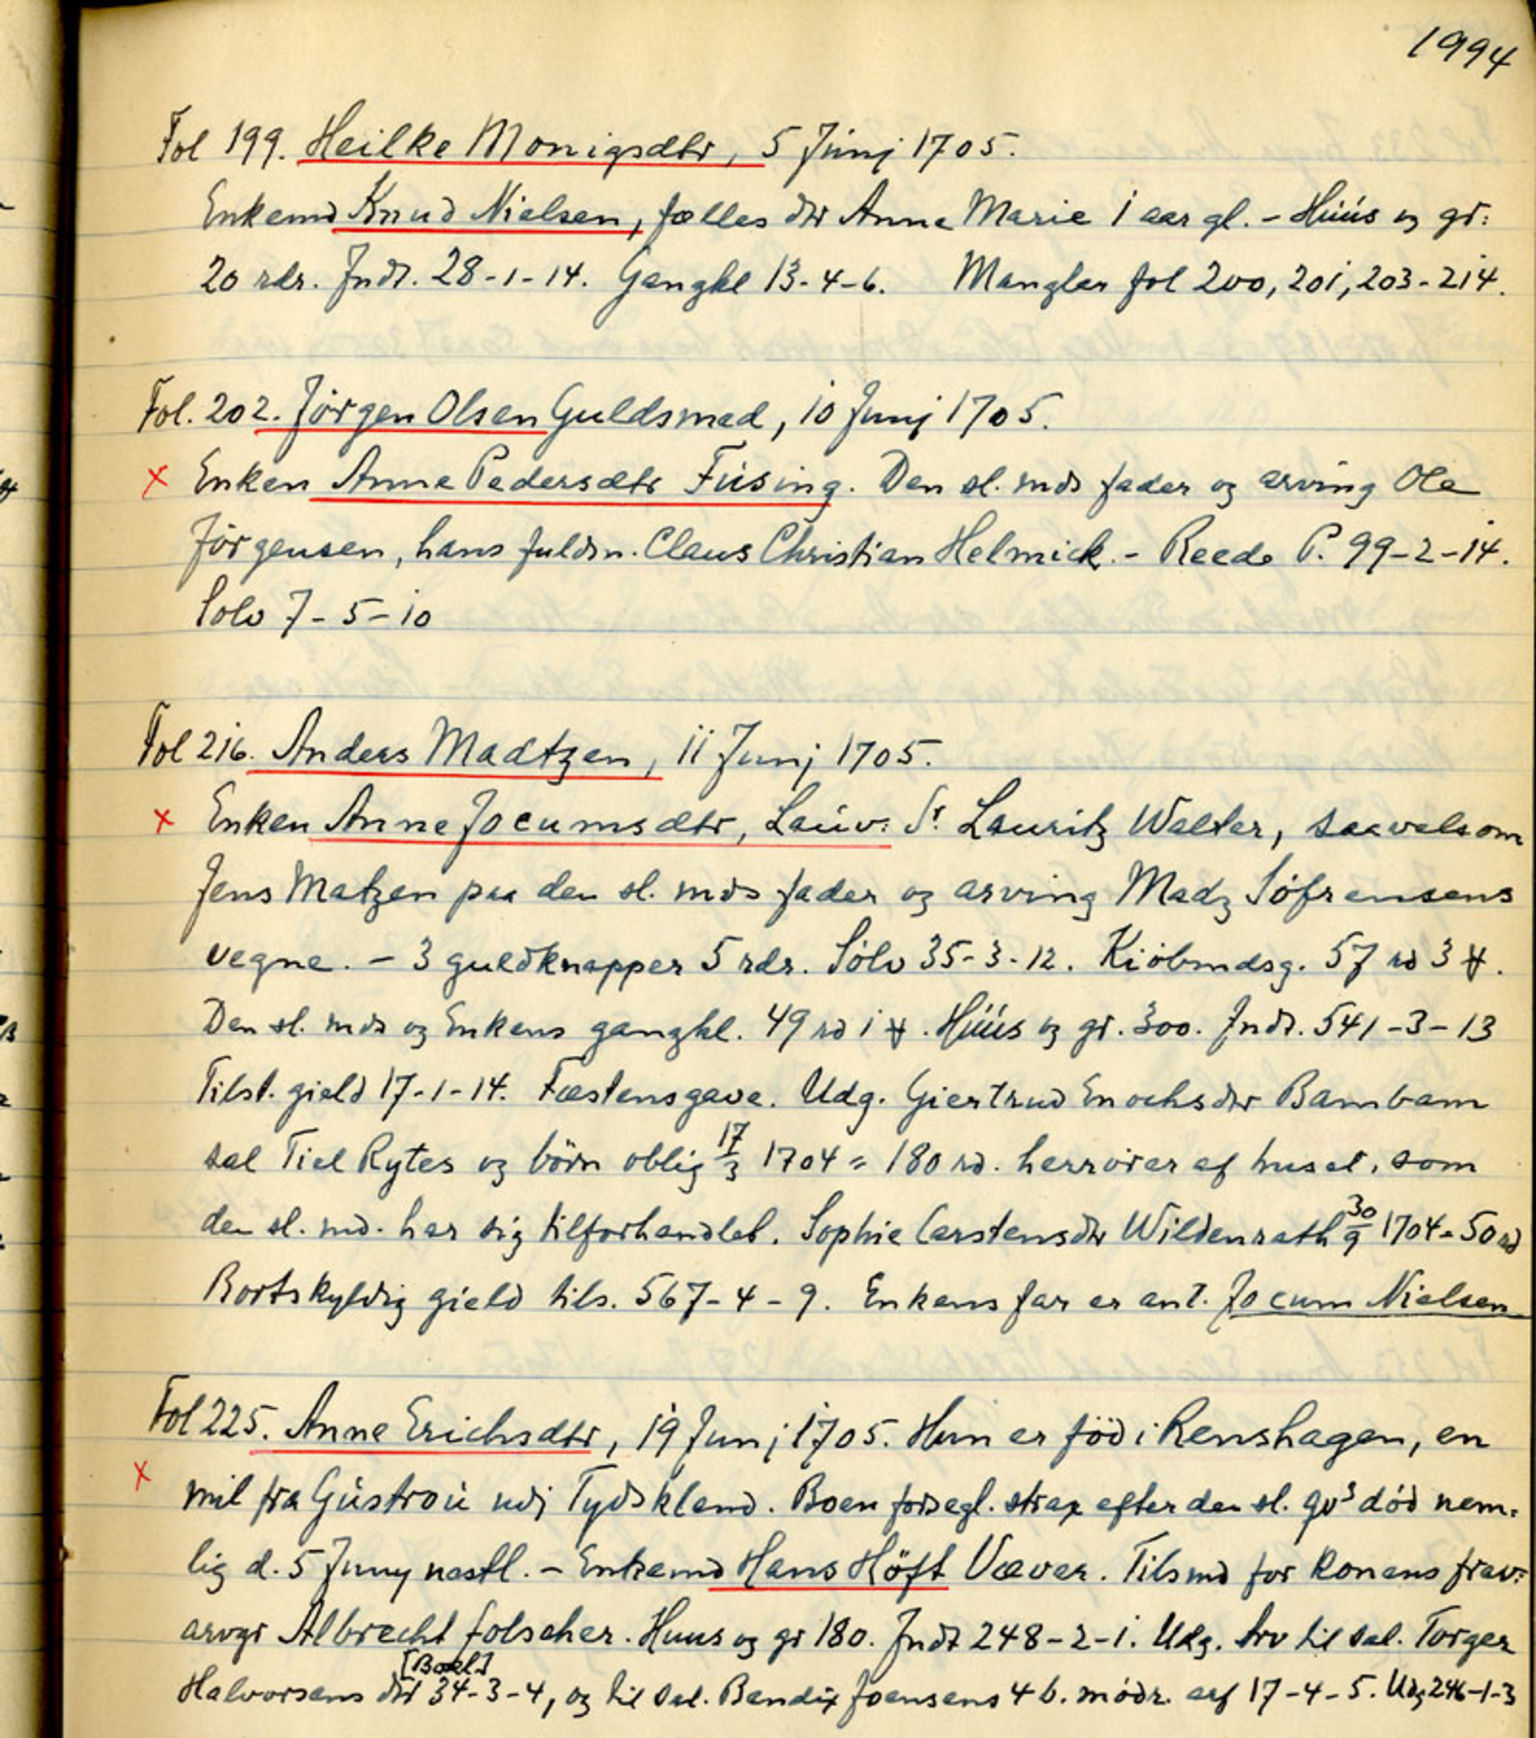 1994
Fol 199. Heilke Monigsdtr, 5 Junj 1705.
Enkemd Knud Nielsen, fælles dtr Anne Marie 1 aar gl. - Húús og gr:
20 rdr. Jndt. 28-1-14. Gangkl 13-4-6. Mangler fol 200, 201, 203-214.
Fol. 202. Jörgen Olsen Guldsmed, 10 Junj 1705.
x Enken Anne Pedersdtr Fúsing. Den sl. mds fader og arving Ole
Jörgensen, hans fuldm. Claus Christian Helmick. - Reede P. 99-2-14.
Sölv 7-5-10
Fol 216. Anders Madtzen, 11 Junj 1705.
x Enken Anne Jocumsdtr, Laúv: Sr. Lauritz Walter, saavelsom
Jens Matzen paa den sl. mds fader og arving Madz Söfrensens
vegne. - 3 guldknapper 5 rdr. Sölv 35-3-12. Kiöbmdsg. 57 rd 3 ort.
Den sl. mds og Enkens gangkl. 49 rd 1 ort. Húús og gr. 300. Jndt. 541-3-13
Tilst. gield 17-1-14. Fæstensgave. Udg. Giertrud Enochsdtr Bambam
sal Tiel Rytes og börn oblig 17/3 1704 = 180 rd. herrörer af huset, som
den sl. md. har sig tilforhandlet. Sophie Carstensdtr Wildenrath 30/9 1704 = 50 rd
Bortskyldig gield tils. 567-4-9. Enkens far er ant. Jocum Nielsen
Fol 225. Anne Erichsdtr, 19 Junj 1705. Hun er föd i Renshagen, en
x mil fra Gústroú udj Tydskland. Boen forsegl. strax efter den sl. qvs död nem-
lig d. 5 Juny nestl. - Enkemd Hans Höft Væver. Tilsmd for konens frav:
arvgr Albrecht Folscher. Huus og gr 180. Jndt 248-2-1. Udg. Arv til sal. Torger
Halvorsens dtr [Boel] 34-3-4, og til sal. Bendix Joensens 4 b. mödr. arf 17-4-5. Udg 246-1-3